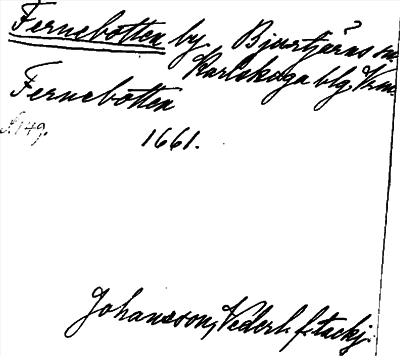 Fernebotten by, Bjurtjärns sn
Karlskoga blg, Vrm.
Fernebotten
s. 149.
1661.
Johansson, Vederl. f. tackj.